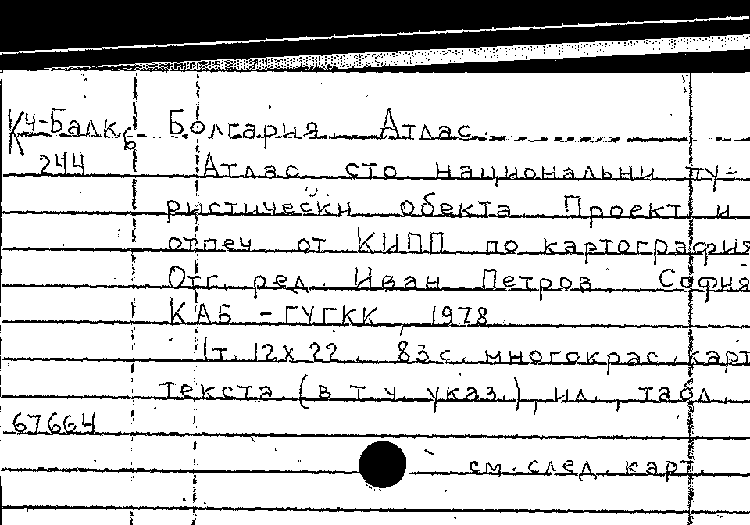 Кч-Балк б Болгария. Атлас.
244 Атлас сто национални ту-
ристически обекта. Проект и
отпеч. от КИПП по картография
Отг. ред. Иван Петров. София
КАБ - ГУГКК 1978
1т. 12х22. 83 с. многокрас. карт
текста (в т.ч. указ.), ил., табл.
67664
см. след. карт.